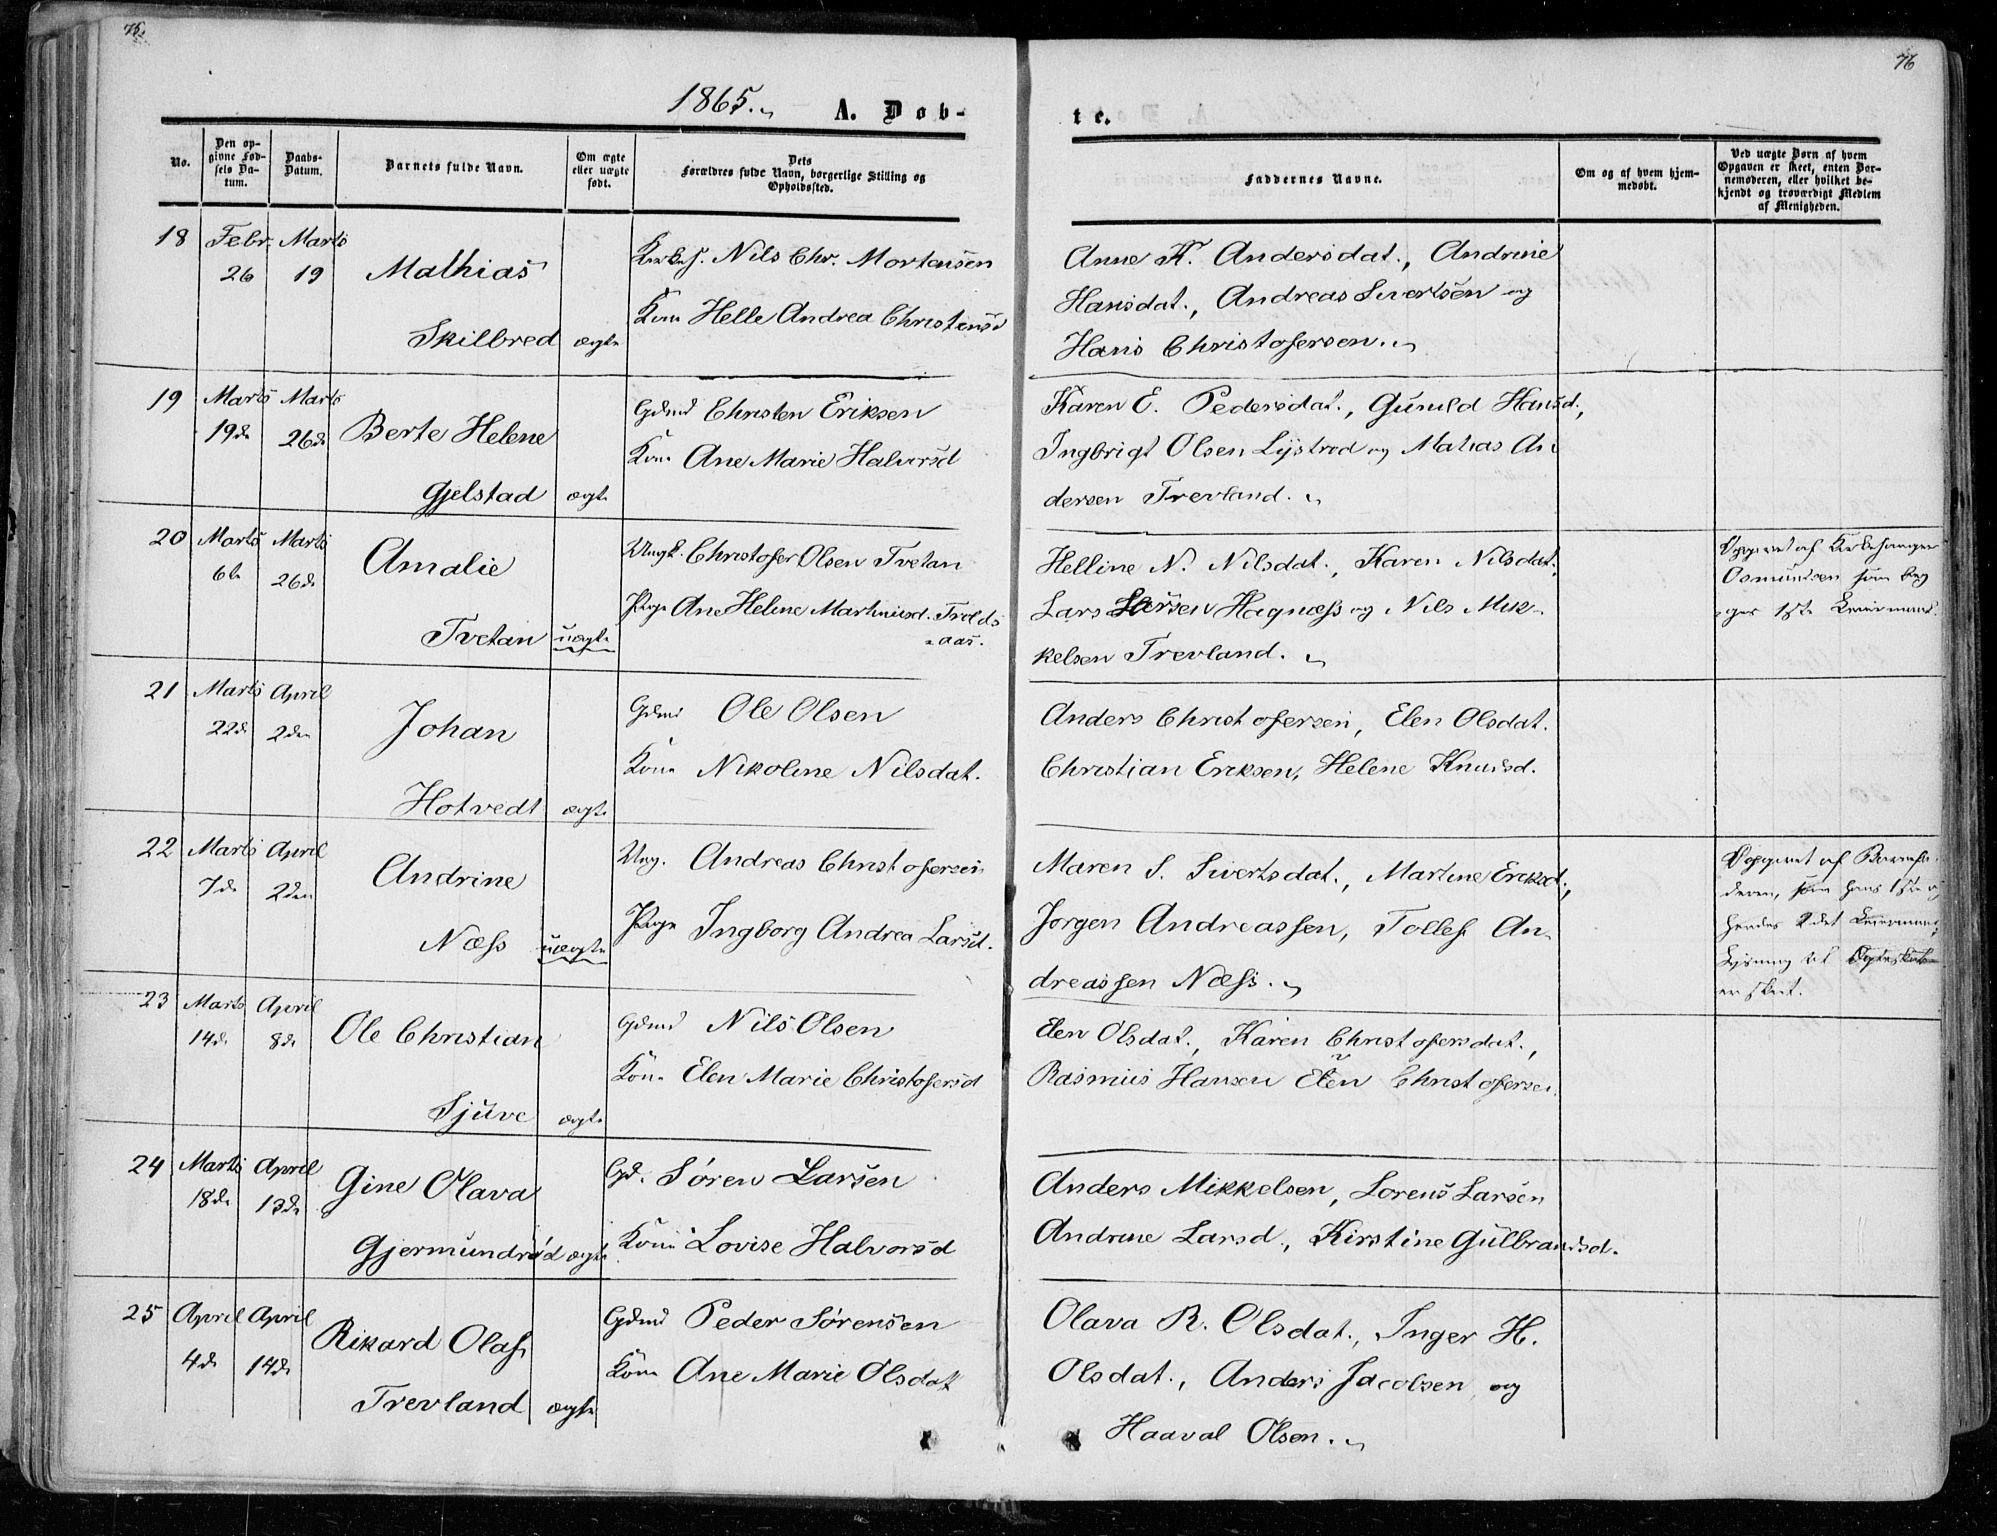 76.
76
1865. A. Døb-
te.
No.
Den opgivne Fødsels Datum.
Daabs-Datum.
Barnets fulde Navn.
Om ægte eller uægte født.
Dets Forældres fulde Navn, borgerlige Stilling og Opholdssted.
Faddernes Navne.
Om og af hvem hjemmedøbt.
Ved uægte Børn af hvem Opgaven er skeet, enten Barnemoderen, eller hvilket bekjendt og troværdigt Medlem af Menigheden.
18 Febr. 26 Marts 19
Mathias
Skilbred ægte
Nils Chr. Mortensen
Kone Helle Andrea Christensd
Anne K. Andersdat., Andrine
Hansdat., Andreas Sivertsen og
Hans Christofersen.
19 Marts 19de Marts 26de
Berte Helene
Gjelstad ægte
Gdmd Christen Eriksen
Kone Ane Marie Halvorsd
Karen E. Pedersdat., Gunild Hansd.,
Ingbrigt Olsen Lystrod og Matias An
dersen Trevland.
20 Marts 6te Marts 26de
Amalie
Tvetan uægte
Ungk. Christofer Olsen Tvetan
Pige Ane Helene Martiniusd. Trolds
-aas.
Helline N. Nilsdat., Karen Nilsdat.,
Lars Larsen Hagnæss og Nils Mik-
kelsen Trevland.
Opgivet af Kirkesanger
Osmundsen som beg
ges 1ste Leiermaal.
21 Marts 22de April 2den
Johan
Hotvedt ægte
Gdmd Ole Olsen
Kone Nikoline Nilsdat.
Anders Christofersen, Elen Olsdat.
Christian Eriksen, Helene Knudsd.
22 Marts 7de April 2den
Andrine
Næss uægte
Ung. Andreas Christofersen
Pige Ingborg Andrea Larsd.
Maren S. Sivertsdat., Martine Eriksd.,
Jorgen Andreassen, Tollef An-
dreassen Næss.
Opgivet af Barnefa-
deren, som hans 1ste og
hendes 2det Leiermaal;
Lysning til Ægteskab
er skeet.
23 Marts 14de April 8de
Ole Christian
Sjuve ægte
Gdmd Nils Olsen
Kone Elen Marie Christofersd
Elen Olsdat., Karen Christofersdat.,
Rasmus Hansen Elen Christofersen
24 Marts 18de April 13de
Gine Olava
Gjermundrød ægte
Gd. Søren Larsen
Kone Lovise Halvorsd
Anders Mikkelsen, Lorens Larsen
Andrine Larsd., Kirstine Gulbrandsd.
25 April 4de April 14de
Rikard Olaf
Trevland ægte
Gdmd Peder Sørensen
Kone Ane Marie Olsdat
Olava R. Olsdat., Inger H.
Olsdat., Anders Jacobsen og
Haaval Olsen.